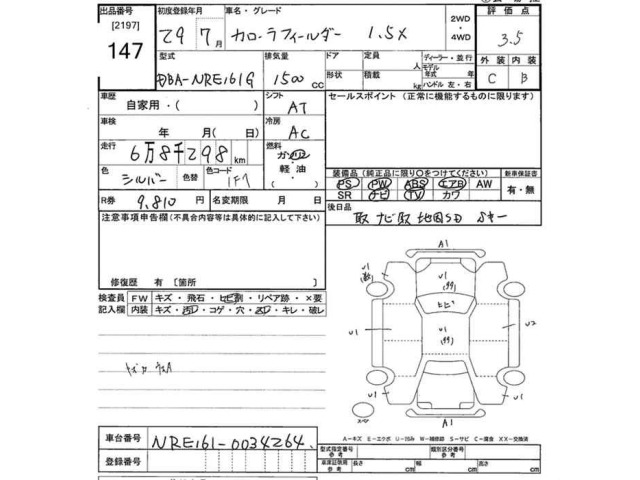 出品番号 初度登録年月 車名・グレード 2WD 評価点
[2197] 29 7月 カローラフィールダー 1.5X ・ 3.5
147 4WD
型式 排気量 ドア 定員 ディーラー・並行 外装 内装
DBA-NRE161G 1500 CC 形状 積載 人 モデル年式 年 C B
kg ハンドル 左・右
車歴 シフト セールスポイント（正常に機能するものに限ります）
自家用・( ) AT
車検 冷房
年 月( ) AC
走行 燃料
6万8千298 km ガソリン
軽油 装備品（純正品に限り○をつけてください） 新車保証書
色 シルバー 色替 色コード 1F7 ・ PS PW ABS エアB AW 有・無
SR ナビ TV カワ
R券 9,810 円 名変期限 月 日 後日品
注意事項申告欄(不具合内容等は具体的に記入して下さい) 取 ナビ取 地図SD Sキー
修復歴 有 〔箇所 〕
検査員 FW キズ・飛石・ヒビ割・リペア跡・×要
記入欄 内装 キズ・汚D・コゲ・穴・・キレ・破レ
A1
U1 U1
ヒビ
U1 U1 U2
U1
A1
A-キズ E-エクボ U-凹み W-補修跡 S-サビ C-腐食 XX-交換済
車台番号 NRE161-0034264
登録番号
型式指定番号 参考 類別区分番号 参考
車庫証明用 参考 長さ cm 幅 cm 高さ cm